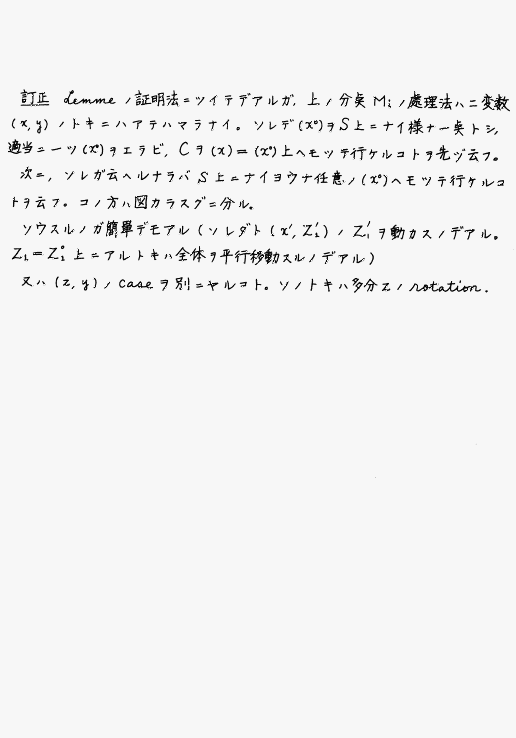 訂正 Lemme ノ証明法ニツイテデアルガ, 上ノ分矣 Mi ノ処理法ハニ変数
(x, y) ノトキニハアテハマラナイ。ソレデ (x⁰) ヲ S 上ニナイ様ナ一矣トシ,
適当ニ一ツ (x⁰) ヲエラビ, C ヲ (x) = (x⁰) 上ヘモツテ行ケルコトヲ先ヅ云フ。
次ニ, ソレガ云ヘルナラバ S 上ニナイヨウナ任意ノ (x⁰) ヘモツテ行ケルコ
トヲ云フ。コノ方ハ図カラスグニ分ル。
ソウスルノガ簡単デモアル (ソレダト (x', Z₁') ノ Z₁' ヲ動カスノデアル。
Z₁ = Z₁⁰ 上ニアルトキハ全体ヲ平行移動スルノデアル)
又ハ (z, y) ノ case ヲ別ニヤルコト。ソノトキハ多分 z ノ rotation.